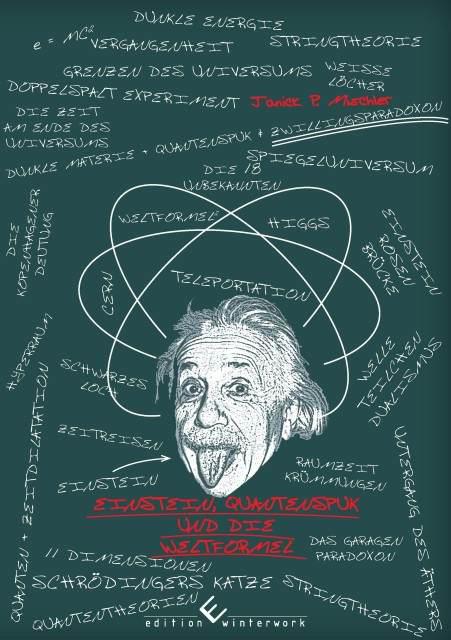 DUNKLE ENERGIE
e = MC²
VERGANGENHEIT
STRINGTHEORIE
GRENZEN DES UNIVERSUMS
WEISSE
LÖCHER
DOPPELSPALT EXPERIMENT
Janick P. Mischler
DIE ZEIT
AM ENDE DES
UNIVERSUMS
DUNKLE MATERIE + QUANTENSPUK + ZWILLINGSPARADOXON
DIE 18
UNBEKANNTEN
SPIEGELUNIVERSUM
DIE
KOPENHAGENER
DEUTUNG
WELTFORMEL
HIGGS
EINSTEIN
ROSEN
BRÜCKE
CERN
TELEPORTATION
HYPERRAUM
SCHWARZES
LOCH
WELLE
TEILCHEN
DUALISMUS
ZEITREISEN
EINSTEIN
RAUMZEIT
KRÜMMUNGEN
QUANTEN + ZEITDILATATION
UNTERGANG DES ÄTHERS
EINSTEIN, QUANTENSPUK
UND DIE
WELTFORMEL
11 DIMENSIONEN
DAS GARAGEN
PARADOXON
SCHRÖDINGERS KATZE
STRINGTHEORIE
QUANTENTHEORIEN
edition winterwork